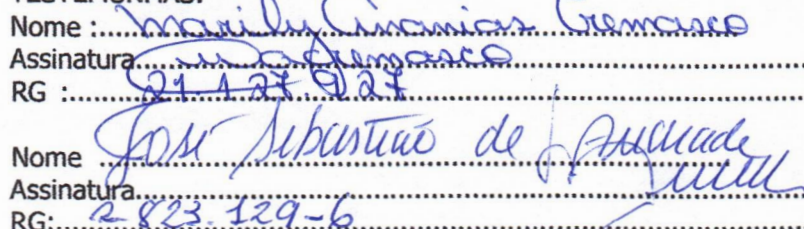 TESTEMUNHAS:
Nome :Marilu Ananias Cremasco
Assinatura MaCremasco
RG :21.127.927
Nome José Sebastião de Andrade
Assinatura
RG: 2-823.129-6